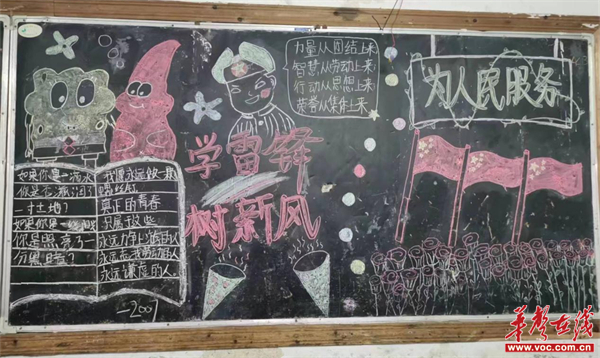 力量从团结上来
智慧从劳动上来
行动从思想上来
荣誉从集体上来
为人民服务
学雷锋
树新风
如果你是一滴水
你是否滋润了
一寸土地?
如果你是一线
你是照亮了一
分黑暗?
我愿永远做一颗
螺丝钉
真正的青春
只属于这些
永远力争上游的人
永远忘我劳动的人
永远谦虚的人.
华声在线
www.voc.com.cn